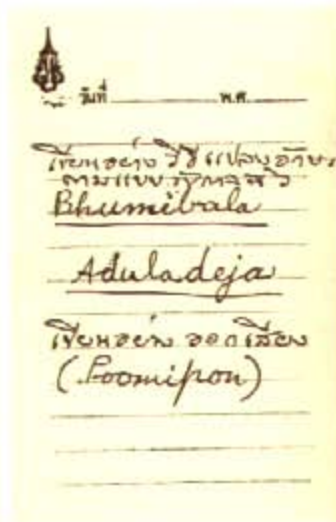 วันที่ พ.ศ.
เขียนอย่าง วิธีแปลงอักษร
ตามแบบ
Bhumibala
Aduladeja
เขียนอย่าง ออกเสียง
(Poomipon)